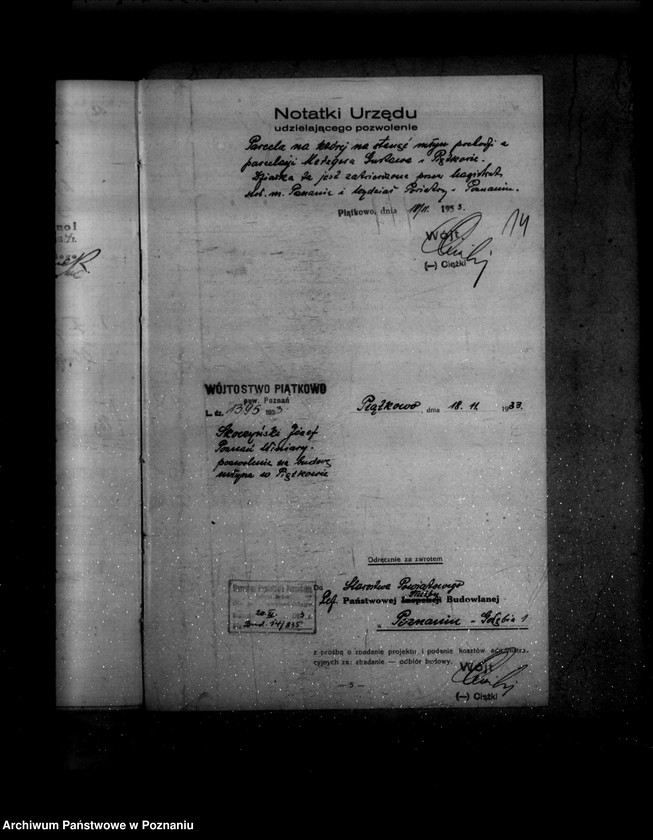 Notatki Urzędu
udzielającego pozwolenie
Parcela na której ma stanąć młyn pochodzi z
parcelacji Metzgera Gustawa w Piątkowie.
jest zatwierdzona przez Magistrat
stoł. m. Poznania i Wydział Powiatowy - Poznaniu.
Piątkowo, dnia 18/11. 1933.
14
Wójt
(—) Ciężki
WÓJTOSTWO PIĄTKOWO
pow. Poznań
L. dz. 1395 1933
Piątkowo, dnia 18. 11. 1933.
Skoczyński Józef
Poznań Winiary.
pozwolenie na budowę
młyna w Piątkowie
Odręcznie za zwrotem
Do Starostwa Powiatowego
Ref. Państwowej Służby Budowlanej
Poznaniu - Gołębia 1
20. XI.
Bud. 14/835
z prośbą o zbadanie projektu i podanie kosztów administra-
cyjnych za: zbadanie — odbiór budowy.
Wójt
(—) Ciężki
— 5 —
Archiwum Państwowe w Poznaniu